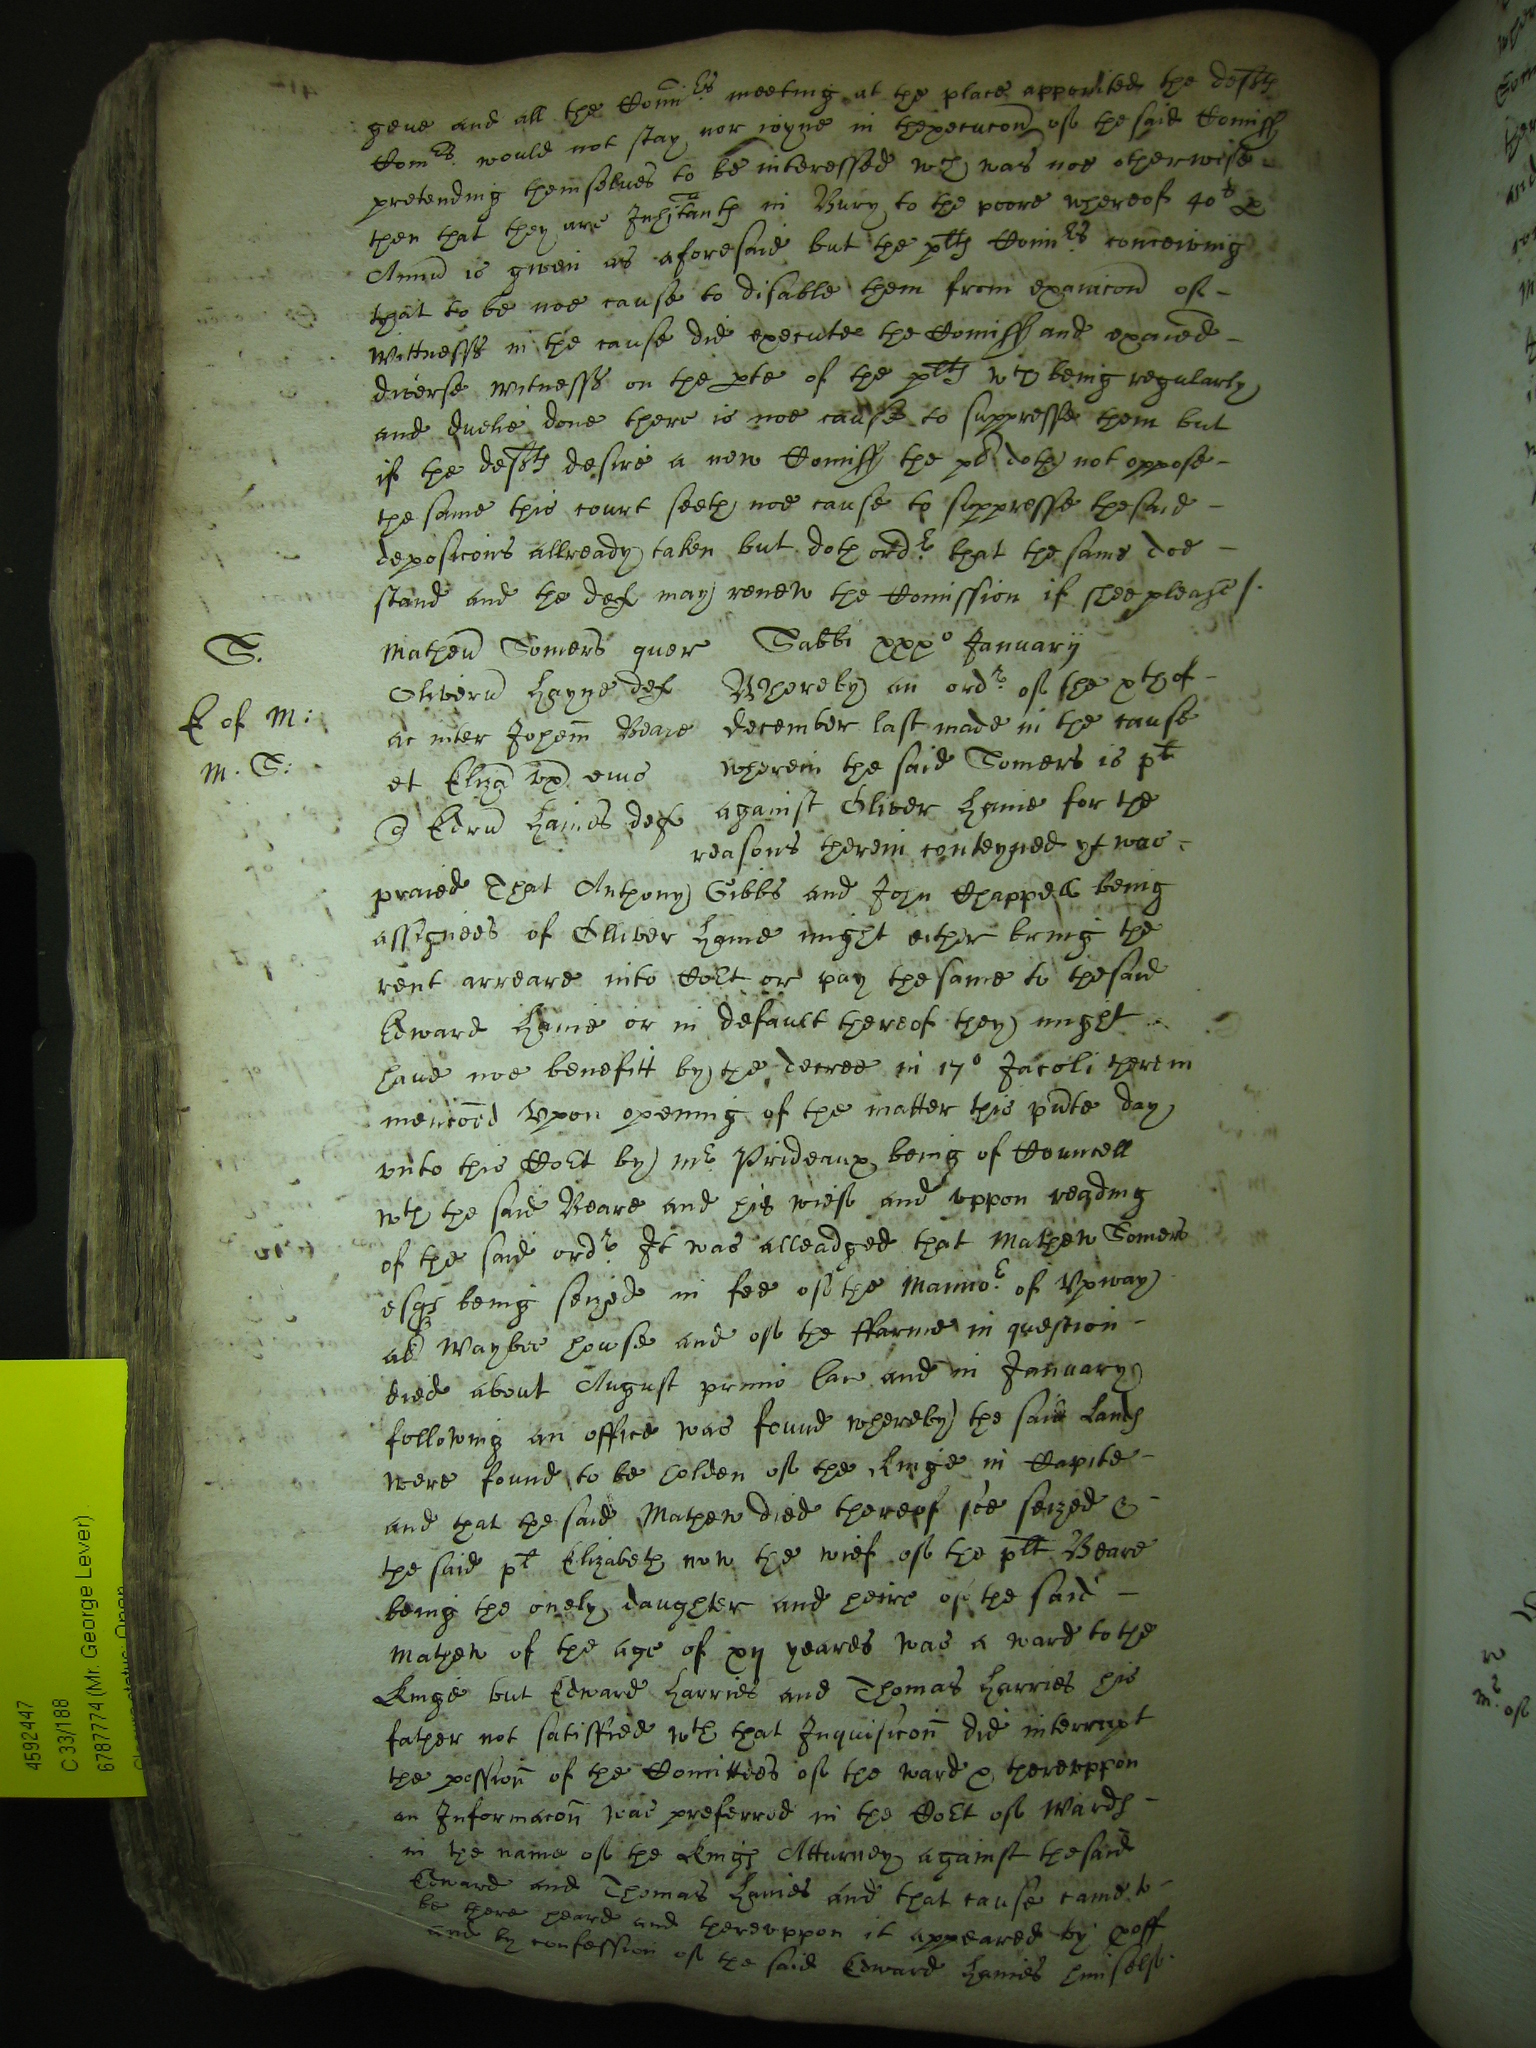 geue and all the Comrs meeting at the place appointed the defts
Comrs would not stay nor ioyne in thexecucon of the said Comiss
pretending themselues to be interessed wch was noe otherwise
then that they are Inhitants in Bury to the poore whereof 40s p
Annu is giuen as aforesaid but the plts Comrs conceiuing
that to be noe cause to disable them from exaiacon of
Wittnesses in the cause did execute the Comiss and exaied
diuerse Witnesses on the pte of the plts wch being regularly
and duelie done there is noe cause to suppresse them but
if the defts desire a new Comiss the plt doth not oppose
the same this court seeth noe cause to suppresse the said
deposicons allready taken but doth ordr that the same doe
stand and the deft may renew the Comission if shee please /.
S.
Matheu Somers quer Sabbi xxxo January
Oliveru Hayne def Whereby an ordr of the xth of
E of M:
ac inter Johem Beare December last made in the cause
M. S:
et Eliza vx eius wherein the said Somers is plt
& Edru Haines def against Oliver Haine for the
reasons therein conteyned yt was
praied That Anthony Gibbs and John Chappell being
assignees of Olliver Haine might either bring the
rent arreare into Cort or pay the same to the said
Edward Haine or in default thereof they might
haue noe benefitt by the decree in 17o Jacobi therein
mencoed Vpon opening of the matter this pnte day
vnto this Cort by Mr Prideaux being of Councell
wth the said Beare and his wief and vppon reading
of the said ordr It was alleadged that Mathew Somers
esqr being seized in fee of the Mannor of Vpway
als Waybee howse and of the ffarme in question
died about August primo Car and in January
following an office was found whereby the said Lands
were found to be holden of the Kinge in Capite
and that the said Mathew died thereof soe seized &
the said plt Elizabeth now the wief of the plt Beare
being the onely daughter and heire of the said
Mathew of the age of xij yeares was a ward to the
Kinge but Edward Harries and Thomas Harries his
father not satisfied wth that Inquisicon did interrupt
the possion of the Comittees of the ward & therevppon
an Informacon was preferred in the Cort of Wards
in the name of the Kings Atturney against the said
Edward and Thomas Haines and that cause came to
be there heard and therevppon it appeared by proff
and by confession of the said Edward Haines himselfe
4592447
C 33/188
6787774 (Mr. George Lever)